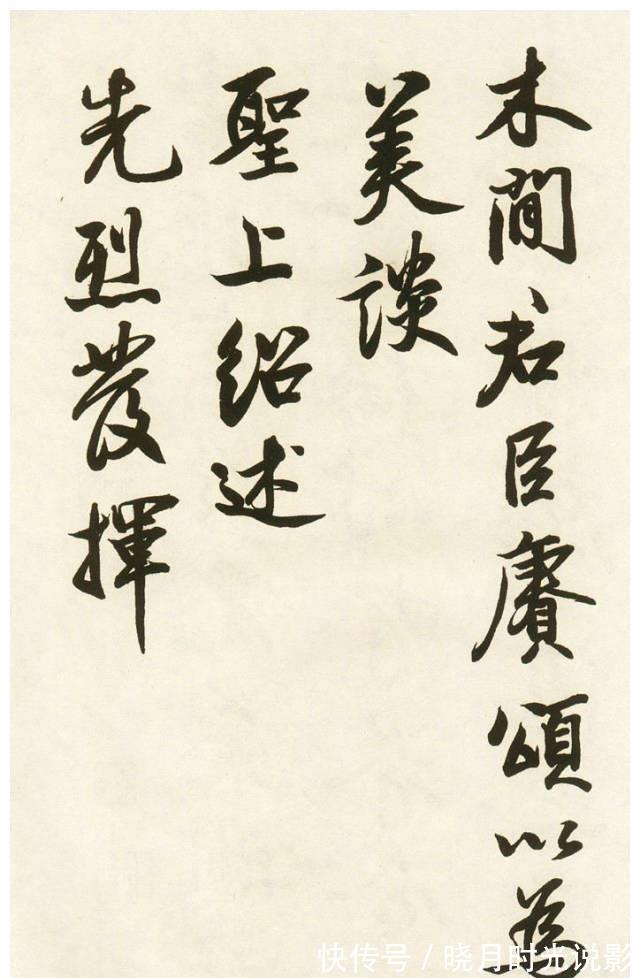 木間君臣賡頌以為
美談
聖上紹述
先烈發揮
快传号 / 晓月时光说影